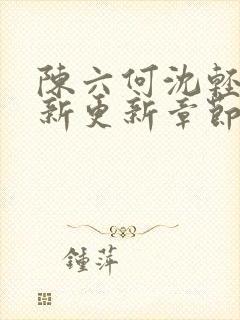 陳六何沈輕
新更新章節
鍾萍